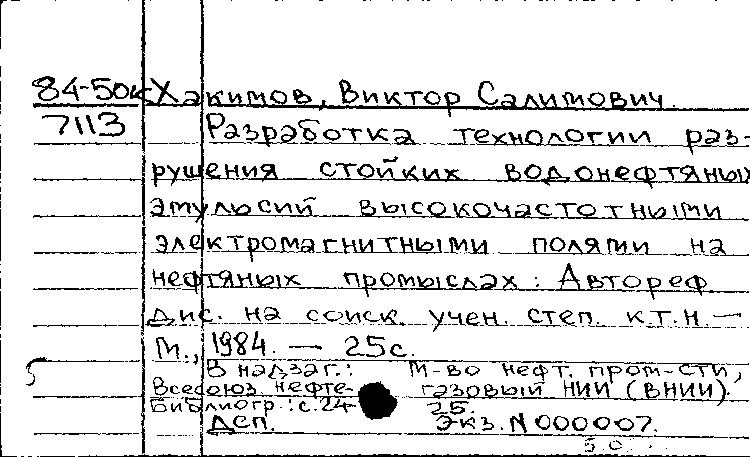 84-50к Хакимов, Виктор Салимович.
7113 Разработка технологии раз-
рушения стойких водонефтяных
эмульсий высокочастотными
электромагнитными полями на
нефтяных промыслах: Автореф.
дис. на соиск. учен. степ. к.т.н. —
М., 1984. — 25с.
В надзаг.: М-во нефт. пром-сти,
Всесоюз нефте- газовый НИИ (ВНИИ).
Библиогр.: с. 24-25.
ДСП. Экз. N 000007.